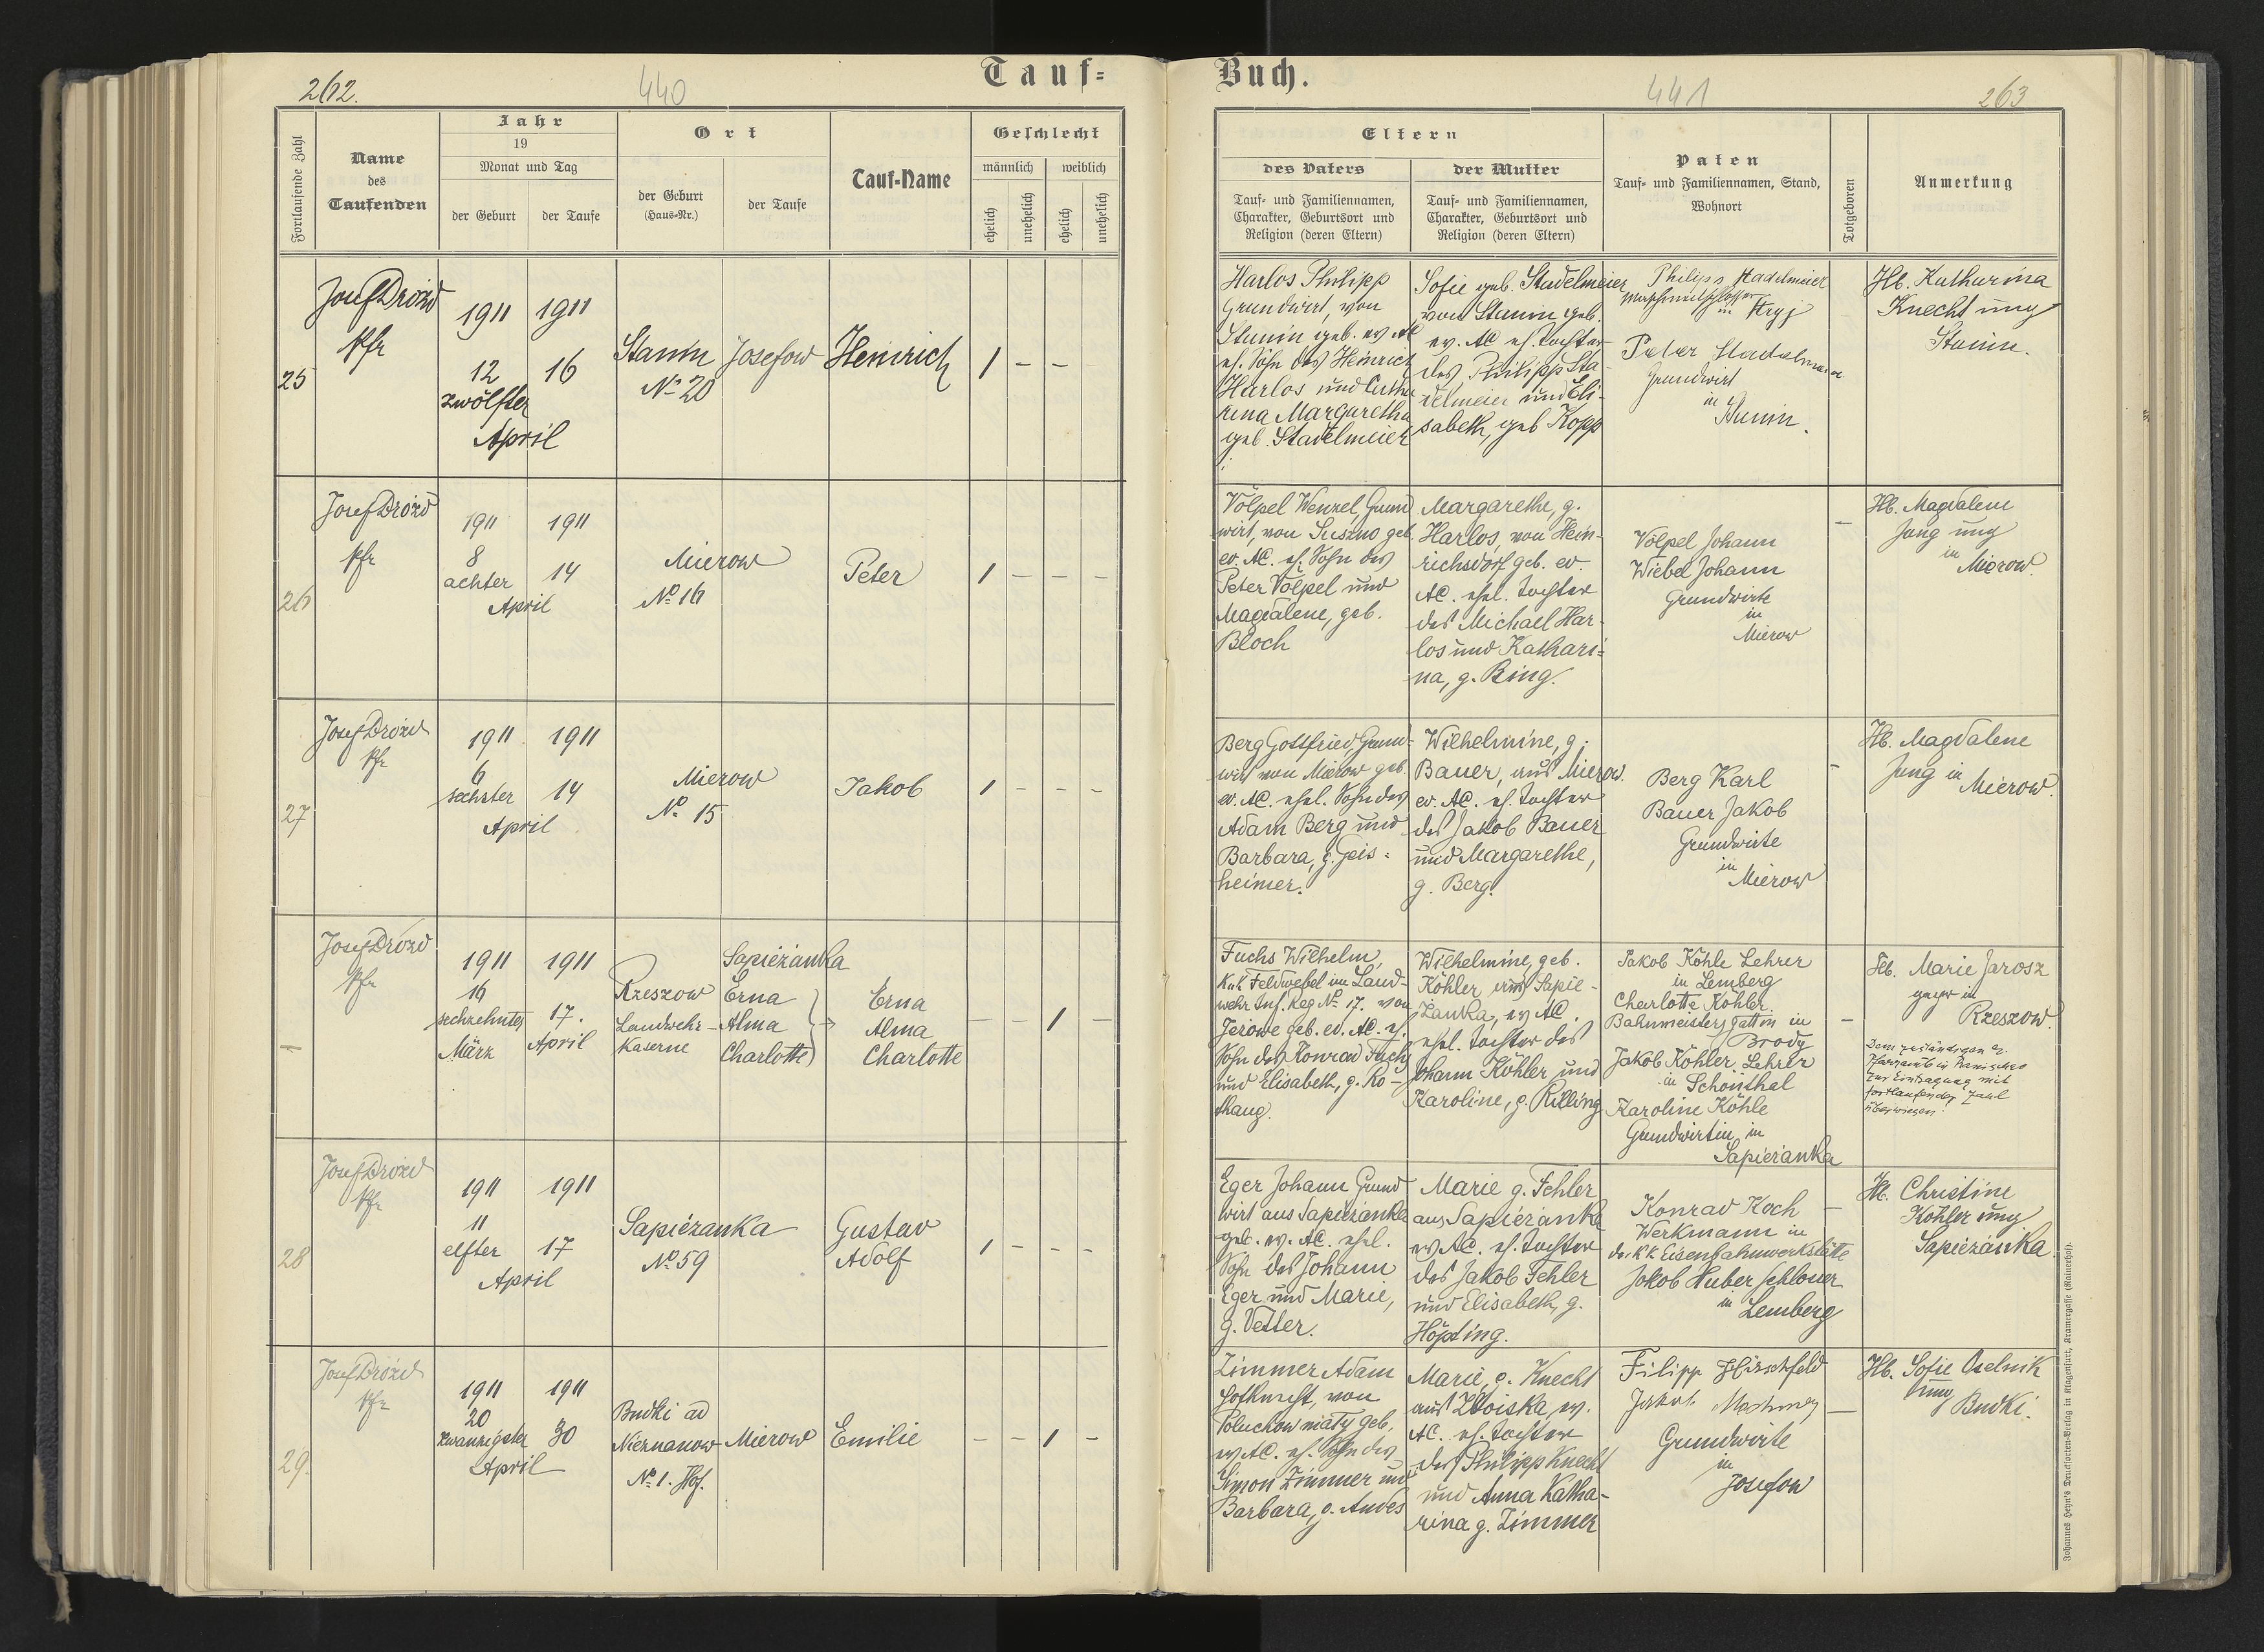 262.
440
Tauf=
Fortlaufende Zahl
Name
des
Taufenden
Jahr
19
Monat und Tag
der Geburt
der Taufe
Ort
der Geburt
(Haus-Nr.)
der Taufe
Tauf-Name
Geschlecht
männlich
weiblich
ehelich
unehelich
ehelich
unehelich
25
Josef Drózd
Pfr
1911 1911
12 16
zwölfter
April
Stanin Josefow
No 20
Heinrich
1 – –
26
Josef Drózd
Pfr
1911 1911
8
achter 14
April
Mierow
No 16
Peter
1 – – –
27
Josef Drózd
Pfr
1911 1911
6
sechster 14
April
Mierow
No 15
Jakob
1 – – –
–
Josef Drózd
Pfr
1911 1911
16
sechzehnter 17.
März April
Rzeszow
Landwehr-
Kaserne
Sapieżanka
Erna
Alma
Charlotte
Erna
Alma
Charlotte
– – 1 –
28
Josef Drózd
Pfr
1911 1911
11
elfter 17
April
Sapieżanka
No 59
Gustav
Adolf
1 – – –
29.
Josef Drózd
Pfr
1911 1911
20
zwanzigster 30
April
Budki ad
Nieznanow
No 1. Hof.
Mierow
Emilie
– – 1 –
Buch.
441
263
Eltern
des Vaters
Tauf- und Familiennamen,
Charakter, Geburtsort und
Religion (deren Eltern)
der Mutter
Tauf- und Familiennamen,
Charakter, Geburtsort und
Religion (deren Eltern)
Paten
Tauf- und Familiennamen, Stand,
Wohnort
Totgeboren
Anmerkung
Harlos Philipp
Grundwirt, von
Stanin geb. ev AC
eh. Sohn des Heinrich
Harlos und Catha-
rina Margaretha
geb. Stadelmeier
Sofie geb. Stadelmeier
von Stanin geb.
ev. AC eh. Tochter
des Philipp Sta-
delmeier und Eli-
sabeth, geb Kopp
Philipp Stadelmeier
in Stryj
Peter Stadelmeier
Grundwirt
in
Stanin.
Hb. Katharina
Knecht ung
Stanin.
Völpel Wenzel, Grund
wirt, von Suszno geb
ev. AC. eh. Sohn des
Peter Völpel und
Magdalene, geb.
Bloch
Margarethe, g.
Harlos, von Hein-
richsdorf geb. ev.
AC. ehel. Tochter
des Michael Har-
los und Kathari=
na, g. Bing.
Völpel Johann
Wiebel Johann
Grundwirte
in
Mierow
–
Hb. Magdalene
Jung ung
in
Mierow.
Berg Gottfried, Grund-
wirt von Mierow geb.
ev. AC. ehel. Sohn des
Adam Berg und
Barbara, g. Geis=
heimer.
Wilhelmine, g.
Bauer, aus Mierow.
ev. AC. eh. Tochter
des Jakob Bauer
und Margarethe,
g. Berg.
Berg Karl
Bauer Jakob
Grundwirte
in
Mierow
–
Hb. Magdalene
Jung in
Mierow.
Fuchs Wilhelm,
KuK Feldwebel im Land-
wehr Inf. Reg No. 17. von
Jerowe geb. ev. AC. eh.
Sohn des Konrad Fuchs
und Elisabeth, g. Ro-
thaug.
Wilhelmine, geb.
Köhler, aus Sapie-
żanka, ev AC.
ehel. Tochter des
Johann Köhler und
Karoline, g. Rilling
Jakob Köhle Lehrer
in Lemberg
Charlotte Köhler
Bahnmeisters gattin in
Brody
Jakob Köhler, Lehrer
in Schönthal
Karoline Köhle
Grundwirtin in
Sapieżanka
–
Hb. Marie Jarosz
gepr in
Rzeszow.
Dem zuständigen ev.
Pfarramte in Ranischau
zur Eintragung mit
fortlaufender Zahl
überwiesen!
Eger Johann Grund
wirt aus Sapieżanka
geb. ev. AC. ehel.
Sohn des Johann
Eger und Marie,
g. Vetter.
Marie g. Fehler
aus Sapieżanka
ev AC. eh. Tochter
des Jakob Fehler
und Elisabeth, g.
Höpting.
Konrad Koch
Werkmann in
der KK Eisenbahnwerkstätte
Jakob Huber Schlosser
in Lemberg
–
Hb. Christine
Köhler ung
Sapieżanka
Zimmer Adam
Hofknecht, von
Poluchow mały geb,
ev AC. eh. Sohn des
Simon Zimmer und
Barbara, g. Andes
Marie, g. Knecht
aus Zboiska, ev.
AC. eh. Tochter
des Philipp Knecht
und Anna Katha-
rina g. Zimmer
Filipp Hirschfeld
Jakob
Grundwirte
in
Josefow
–
Hb. Sofie Oselnik
ung
Budki.
Johannes Heyn's Drucksorten-Verlag in Klagenfurt, Kramergasse (Rainerhof).